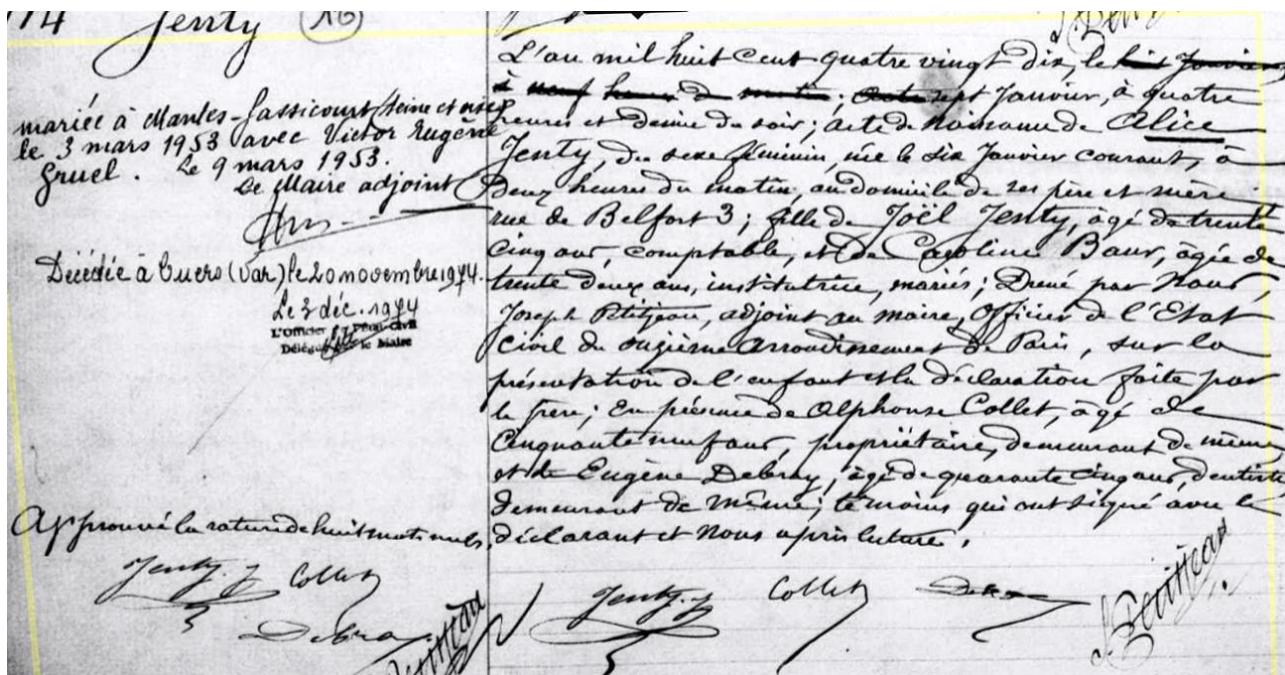 74 Jenty
16
mariée à Mantes-Gassicourt (Seine et Oise)
le 3 mars 1953 avec Victor Eugène
Gruel. Le 9 mars 1953.
Le Maire adjoint
Décédée à Cuers (Var) le 20 novembre 1974.
Le 3 déc. 1974
L'Officier de l'Etat-Civil
Délégué le Maire
Approuvé la rature de huit mots nuls,
Jenty. J Collet
Debray
Petitjean
L'an mil huit cent quatre vingt dix, le huit Janvier
à neuf heures du matin; acte sept Janvier, à quatre
heures et demie du soir; acte de naissance de Alice
Jenty, du sexe féminin, née le six Janvier courant, à
deux heures du matin, au domicile de ses père et mère
rue de Belfort 3; fille de Joël Jenty, âgé de trente
cinq ans, comptable, et de Caroline Baur, âgée de
trente deux ans, institutrice, mariés; Dressé par Nous,
Joseph Petitjean, adjoint au maire, Officier de l'Etat
civil du onzième arrondissement de Paris, sur la
présentation de l'enfant et la déclaration faite par
le père; En présence de Alphonse Collet, âgé de
cinquante neuf ans, propriétaire, demeurant de même
et de Eugène Debray, âgé de quarante cinq ans, dentiste
demeurant de même; témoins qui ont signé avec le
déclarant et Nous après lecture.
Jenty. J Collet Debray
J. Petitjean